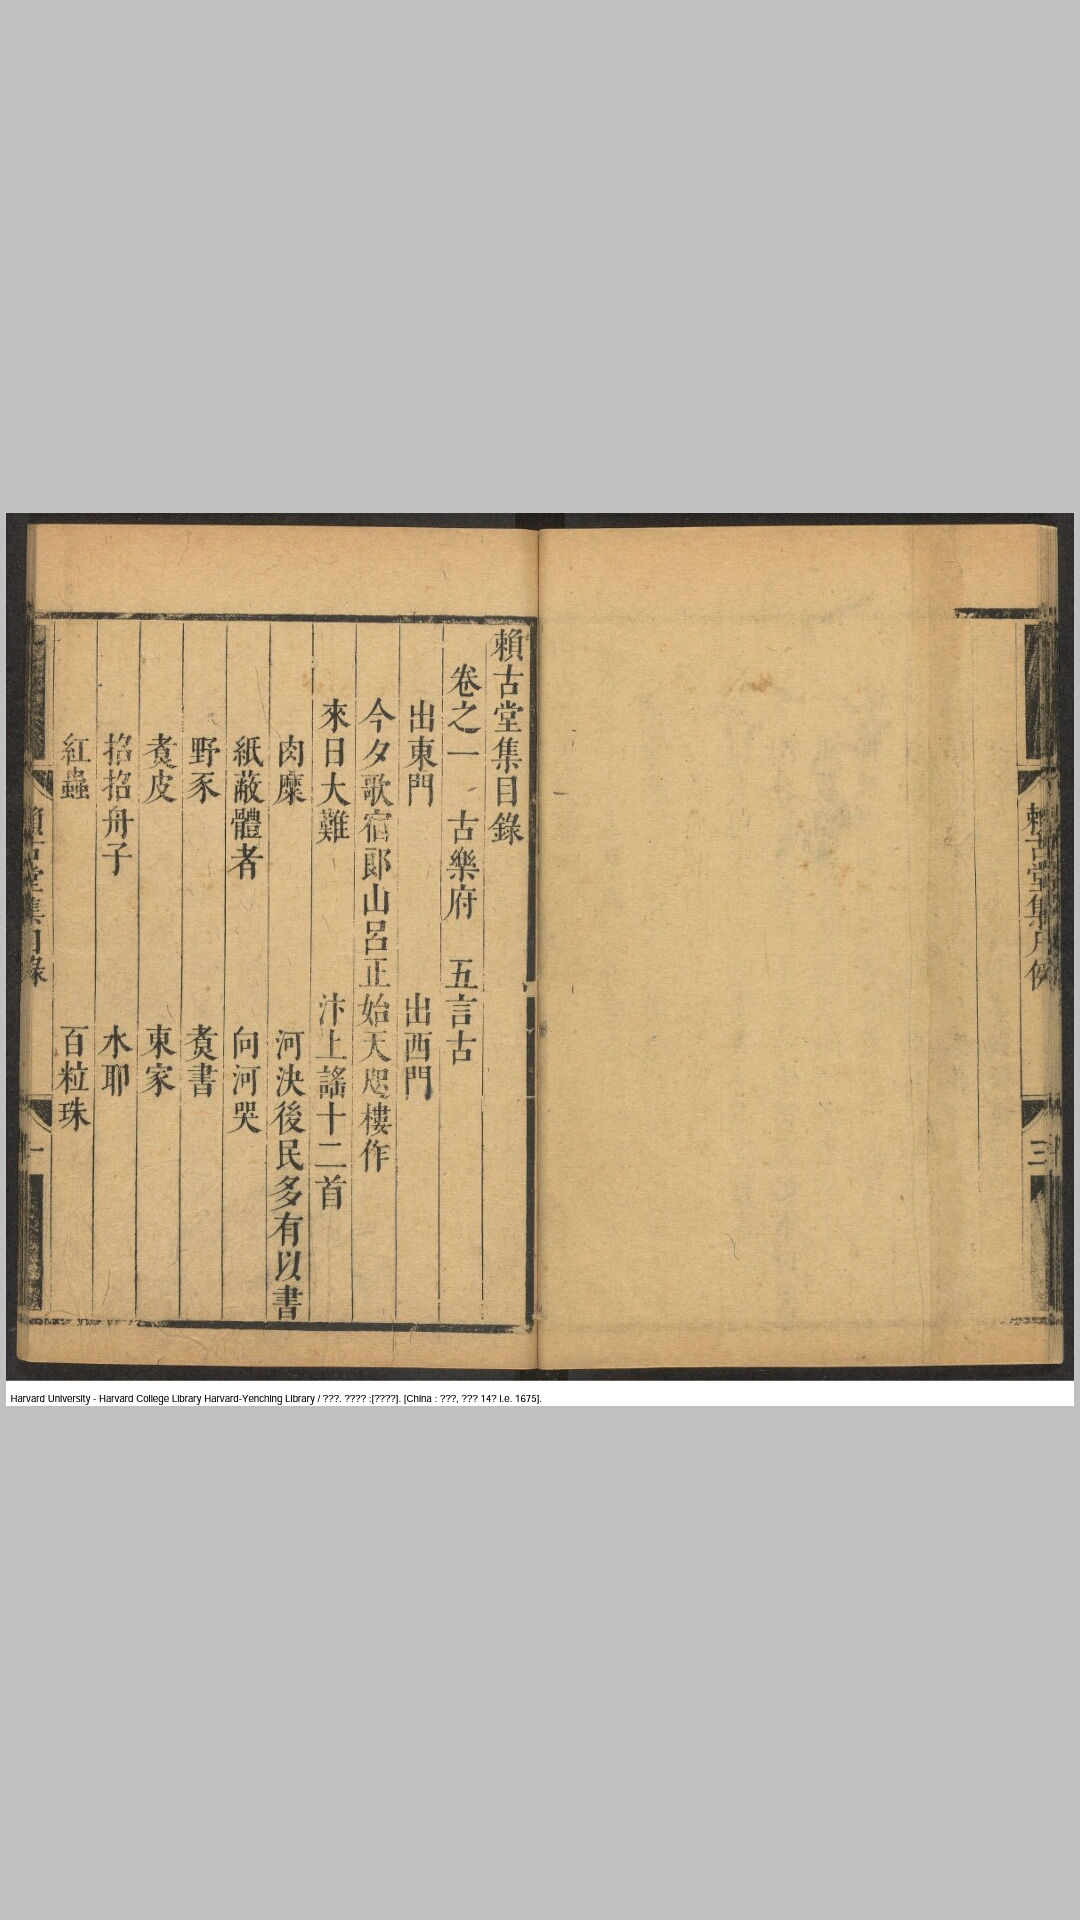 賴古堂集目錄
卷之一 古樂府 五言古
出東門 出西門
今夕歌宿郎山呂正始天咫樓作
來日大難 汴上謠十二首
肉糜 河決後民多有以書
紙蔽體者 向河哭
野豕 煑書
煑皮 東家
招招舟子 水耶
紅蟲 百粒珠
賴古堂集目錄 一
賴古堂集 三
Harvard University - Harvard College Library Harvard-Yenching Library / ???. ???? :[????]. [China : ???, ??? 14? i.e. 1675].